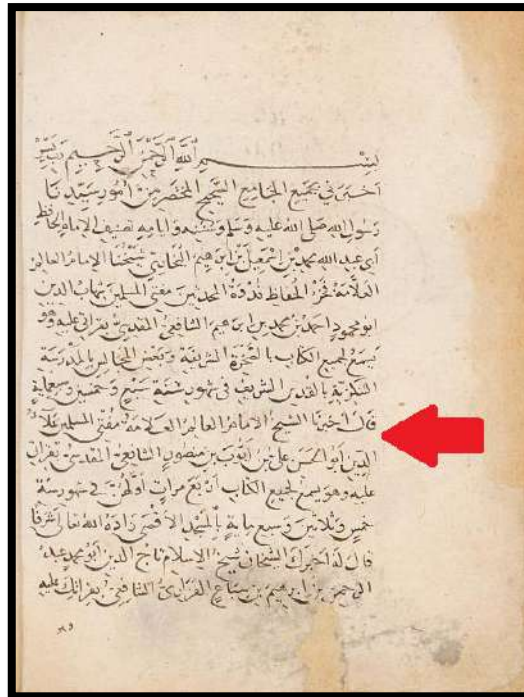 بسم الله الرحمن الرحيم رب يسر
اخبرني بجميع الجامع الصحيح المختصر من امور سيدنا
رسول الله صلى الله عليه وسلم وسننه وايامه تصنيف الامام الحافظ
ابي عبد الله محمد بن اسمعيل بن ابرهيم البخاري شيخنا الامام العالم
العلامة فخر الحفاظ قدوة المحدثين مفتي المسلمين شهاب الدين
ابو محمود احمد بن محمد بن ابرهيم الشافعي المقدسي بقراتي عليه وهو
يسمع لجميع الكتاب بالصخرة الشريفة وبعض المجالس بالمدرسة
التنكزية بالقدس الشريف في شهور سنة وخمسين وسبعماية
قال اخبرنا الشيخ الامام العالم العلامة مفتي المسلمين علاء
الدين ابو الحسن علي بن ايوب بن منصور الشافعي المقدسي بقراتي
عليه وهو يسمع لجميع الكتاب اربع مرات اولهن في شهور سنة
خمس وثلاثين وسبع ماية بالمسجد الاقصى زاده الله تعالى شرفا
قال له اخبرك الشيخان شيخ الاسلام تاج الدين ابو محمد عبد
الرحمن بن ابرهيم بن سباع الفزاري الشافعي بقراتك عليه